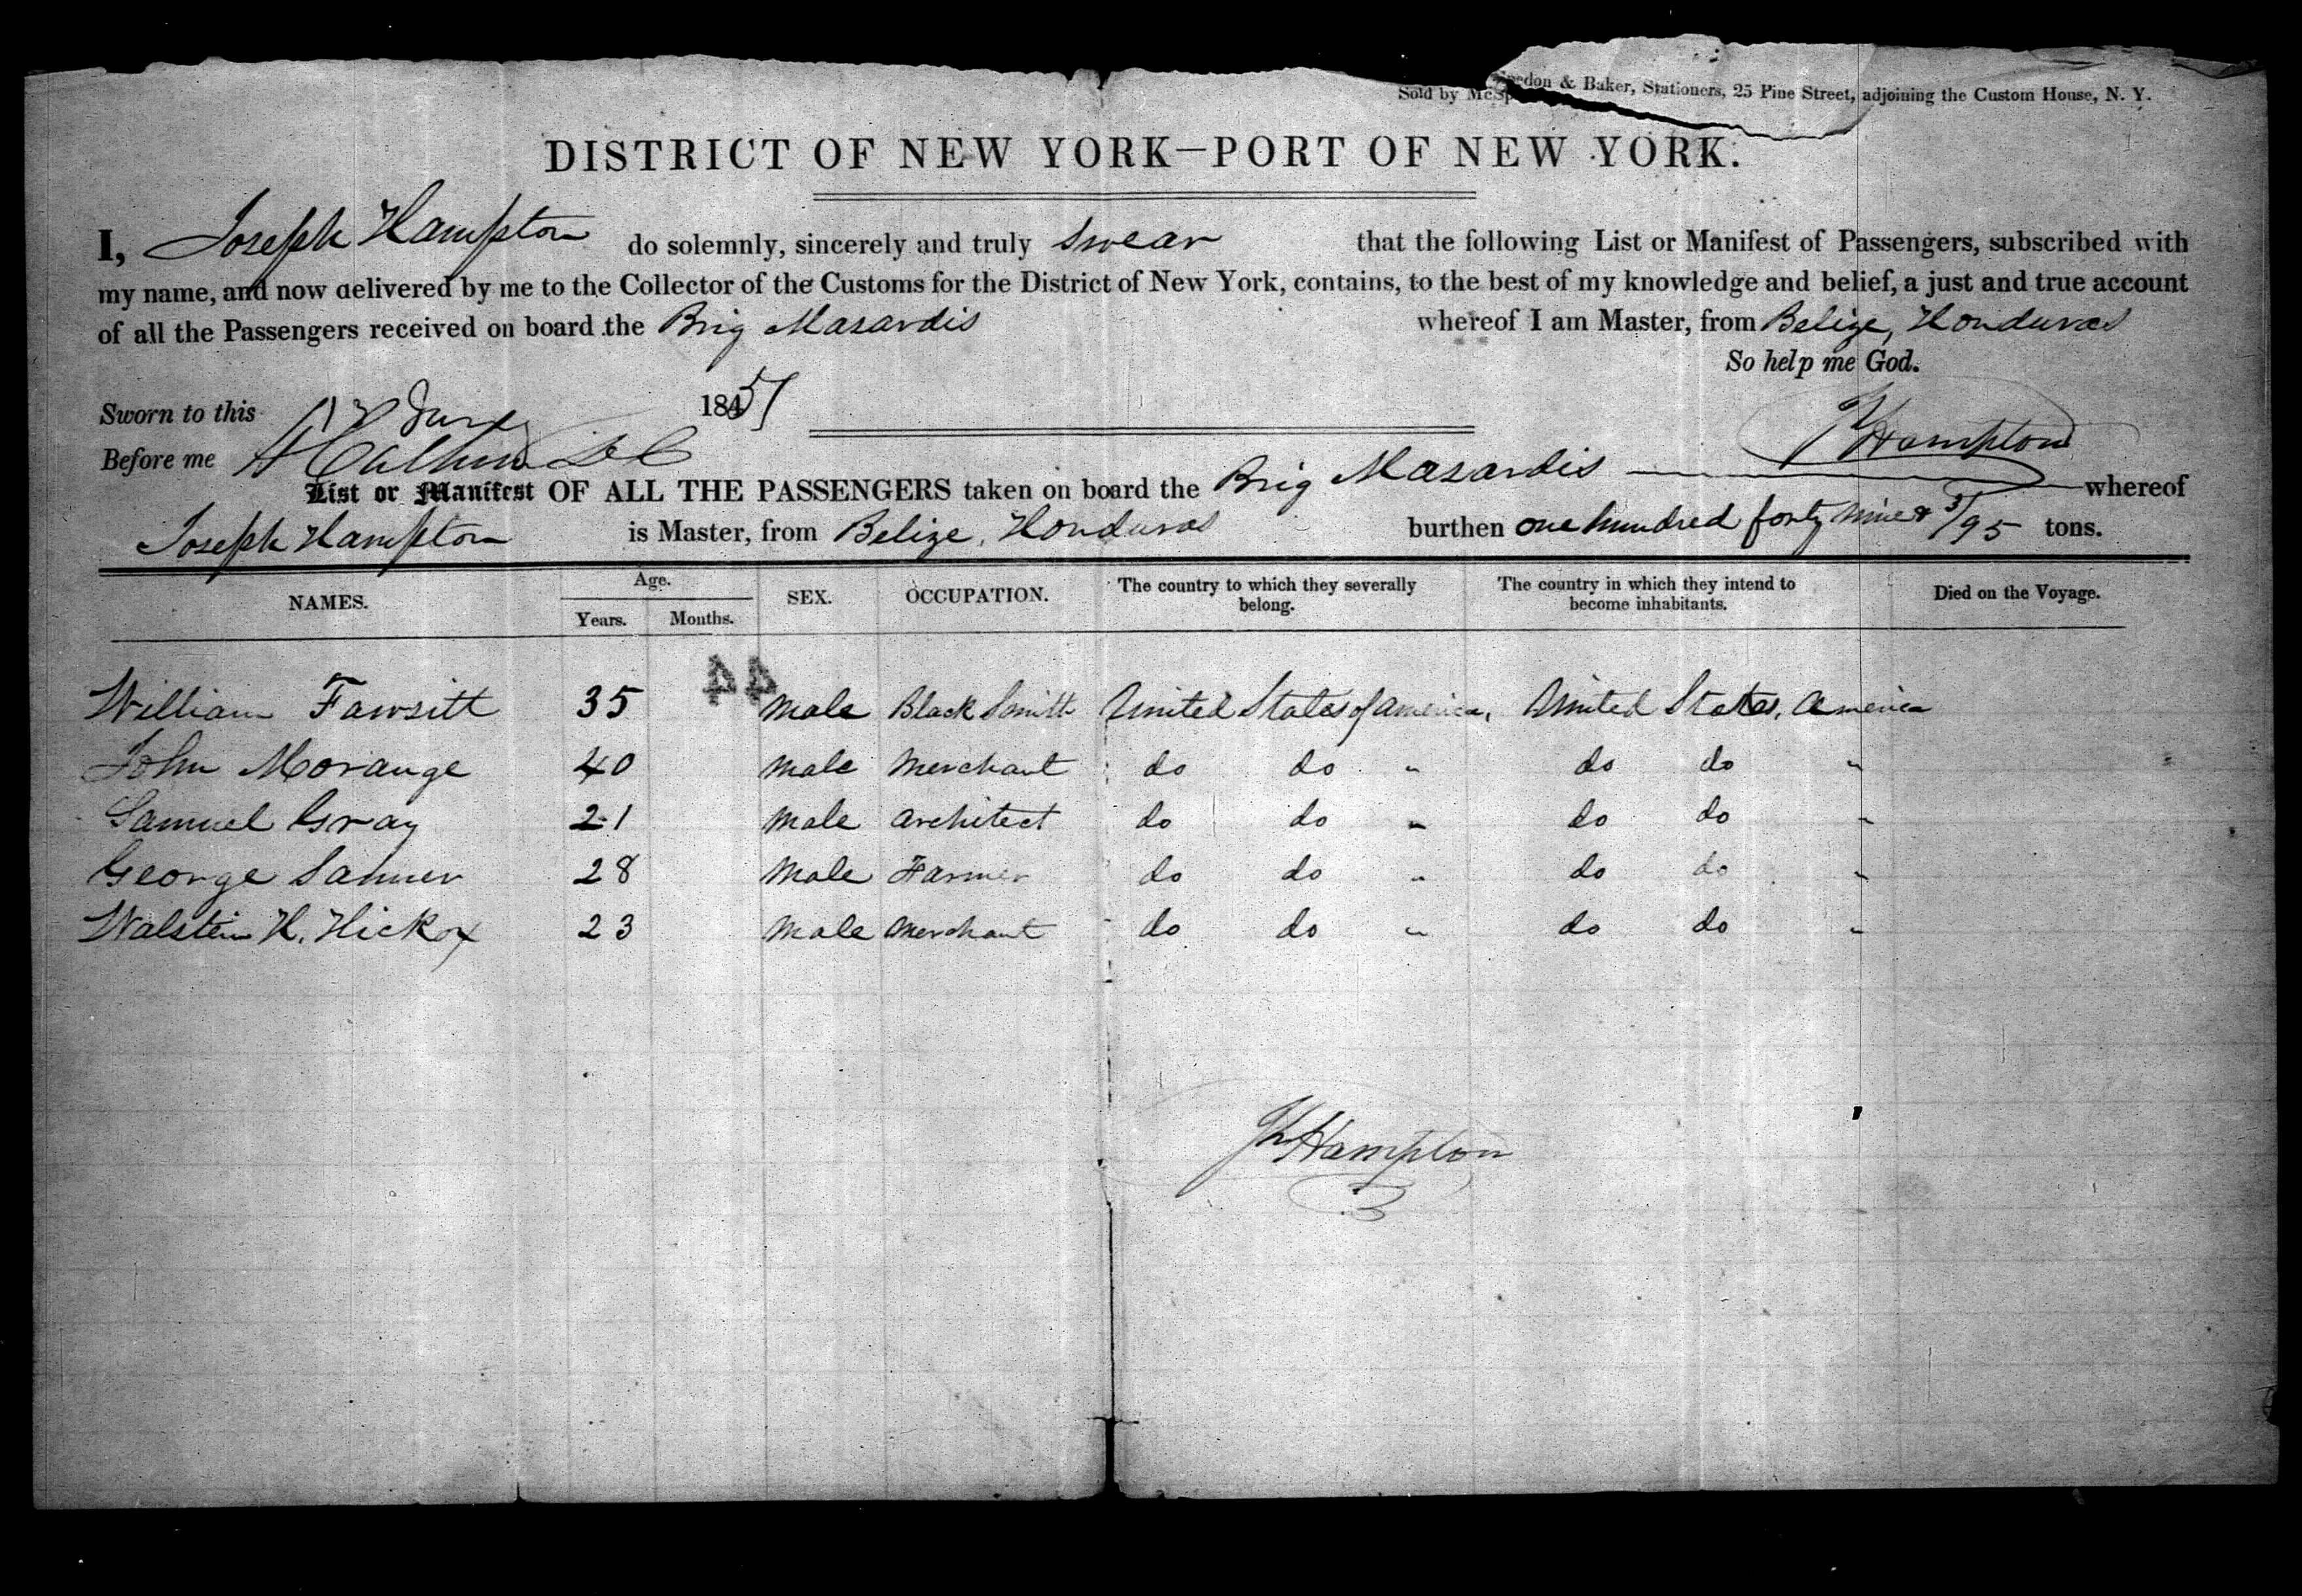 Sold by McSpedon & Baker, Stationers, 25 Pine Street, adjoining the Custom House, N. Y.
DISTRICT OF NEW YORK—PORT OF NEW YORK.
I, Joseph Hampton do solemnly, sincerely and truly swear that the following List or Manifest of Passengers, subscribed with
my name, and now delivered by me to the Collector of the Customs for the District of New York, contains, to the best of my knowledge and belief, a just and true account
of all the Passengers received on board the Brig Masardis whereof I am Master, from Belize, Honduras
So help me God.
Sworn to this June 1851
Before me
Hampton
List or Manifest OF ALL THE PASSENGERS taken on board the Brig Masardis whereof
Joseph Hampton is Master, from Belize, Honduras burthen one hundred forty nine & 3/95 tons.
NAMES. Age. SEX. OCCUPATION. The country to which they severally belong. The country in which they intend to become inhabitants. Died on the Voyage.
Years. Months.
44
William Fawsitt 35 male Black Smith United States of America, United States, America
John Morange 40 male merchant do do " do do "
Samuel Gray 21 male architect do do " do do "
George Sanner 28 male Farmer do do " do do "
Walstein H. Hickox 23 male merchant do do " do do "
Hampton